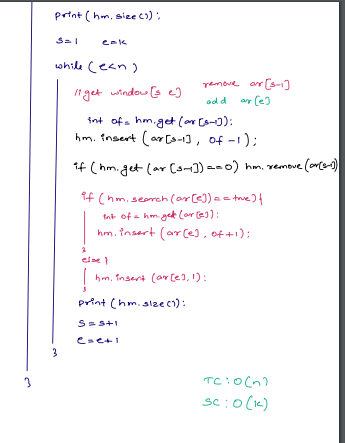 print(hm.size());
s=1 e=k
while (e<n)
//get window[s e] remove ar[s-1]
add ar[e]
int of = hm.get(ar[s-1]);
hm.insert(ar[s-1], of-1);
if (hm.get(ar[s-1])==0) hm.remove(ar[s-1])
if (hm.search(ar[e])==true){
int of = hm.get(ar[e]);
hm.insert(ar[e], of+1);
}
else {
hm.insert(ar[e],1);
}
print(hm.size());
s=s+1
e=e+1
}
}
TC: O(n)
SC: O(k)